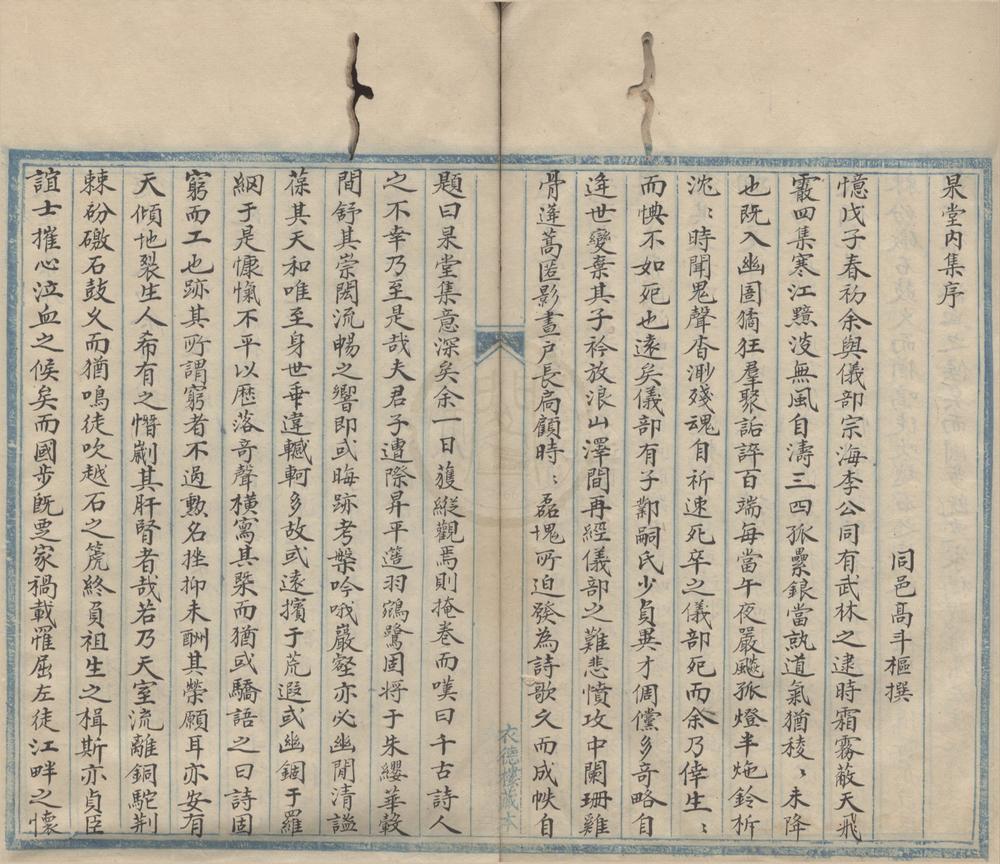 杲堂内集序
同邑高斗樞撰
憶戊子春初余與儀部宗海李公同有武林之逮時霜霧蔽天飛
霰四集寒江黯淡無風自濤三四孤纍銀當就道氣猶稜〻未降
也既入幽圄猶狂羣聚詬誶百端每當午夜嚴飈孤燈半灺鈴柝
沈〻時聞鬼聲杳渺殘魂自祈速死卒之儀部死而余乃倖生〻
而㥏不如死也遠矣儀部有子鄴嗣氏少負異才倜儻多奇略自
逄世變棄其子衿放浪山澤間再經儀部之難悲憤攻中闌珊雞
骨蓬蒿匿影晝戸長扃顧時〻磊塊所迫發為詩歌文而成帙自
題曰杲堂集意深矣余一日獲縱觀焉則掩卷而嘆曰千古詩人
之不幸乃至是哉夫君子遭際昇平簉羽鵷鷺固將于朱纓華轂
間舒其崇閎流暢之響即或晦跡考槃吟哦巖壑亦必幽閒清謐
葆其天和唯至身世乖違轗軻多故或遠擯于荒遐或幽錮于羅
網于是慷慨不平以歷落奇聲橫寫其槩而猶或驕語之曰詩固
窮而工也跡其所謂窮者不過勲名挫抑未酬其榮願耳亦安有
天傾地裂生人希有之慘劌其肝腎者哉若乃天室流離銅駝荆
棘砏磤石鼓乂而猶鳴徒吹越石之篪終負祖生之楫斯亦貞臣
誼士摧心泣血之候矣而國步旣㚇家禍載罹屈左徒江畔之懷
衣德樓藏本